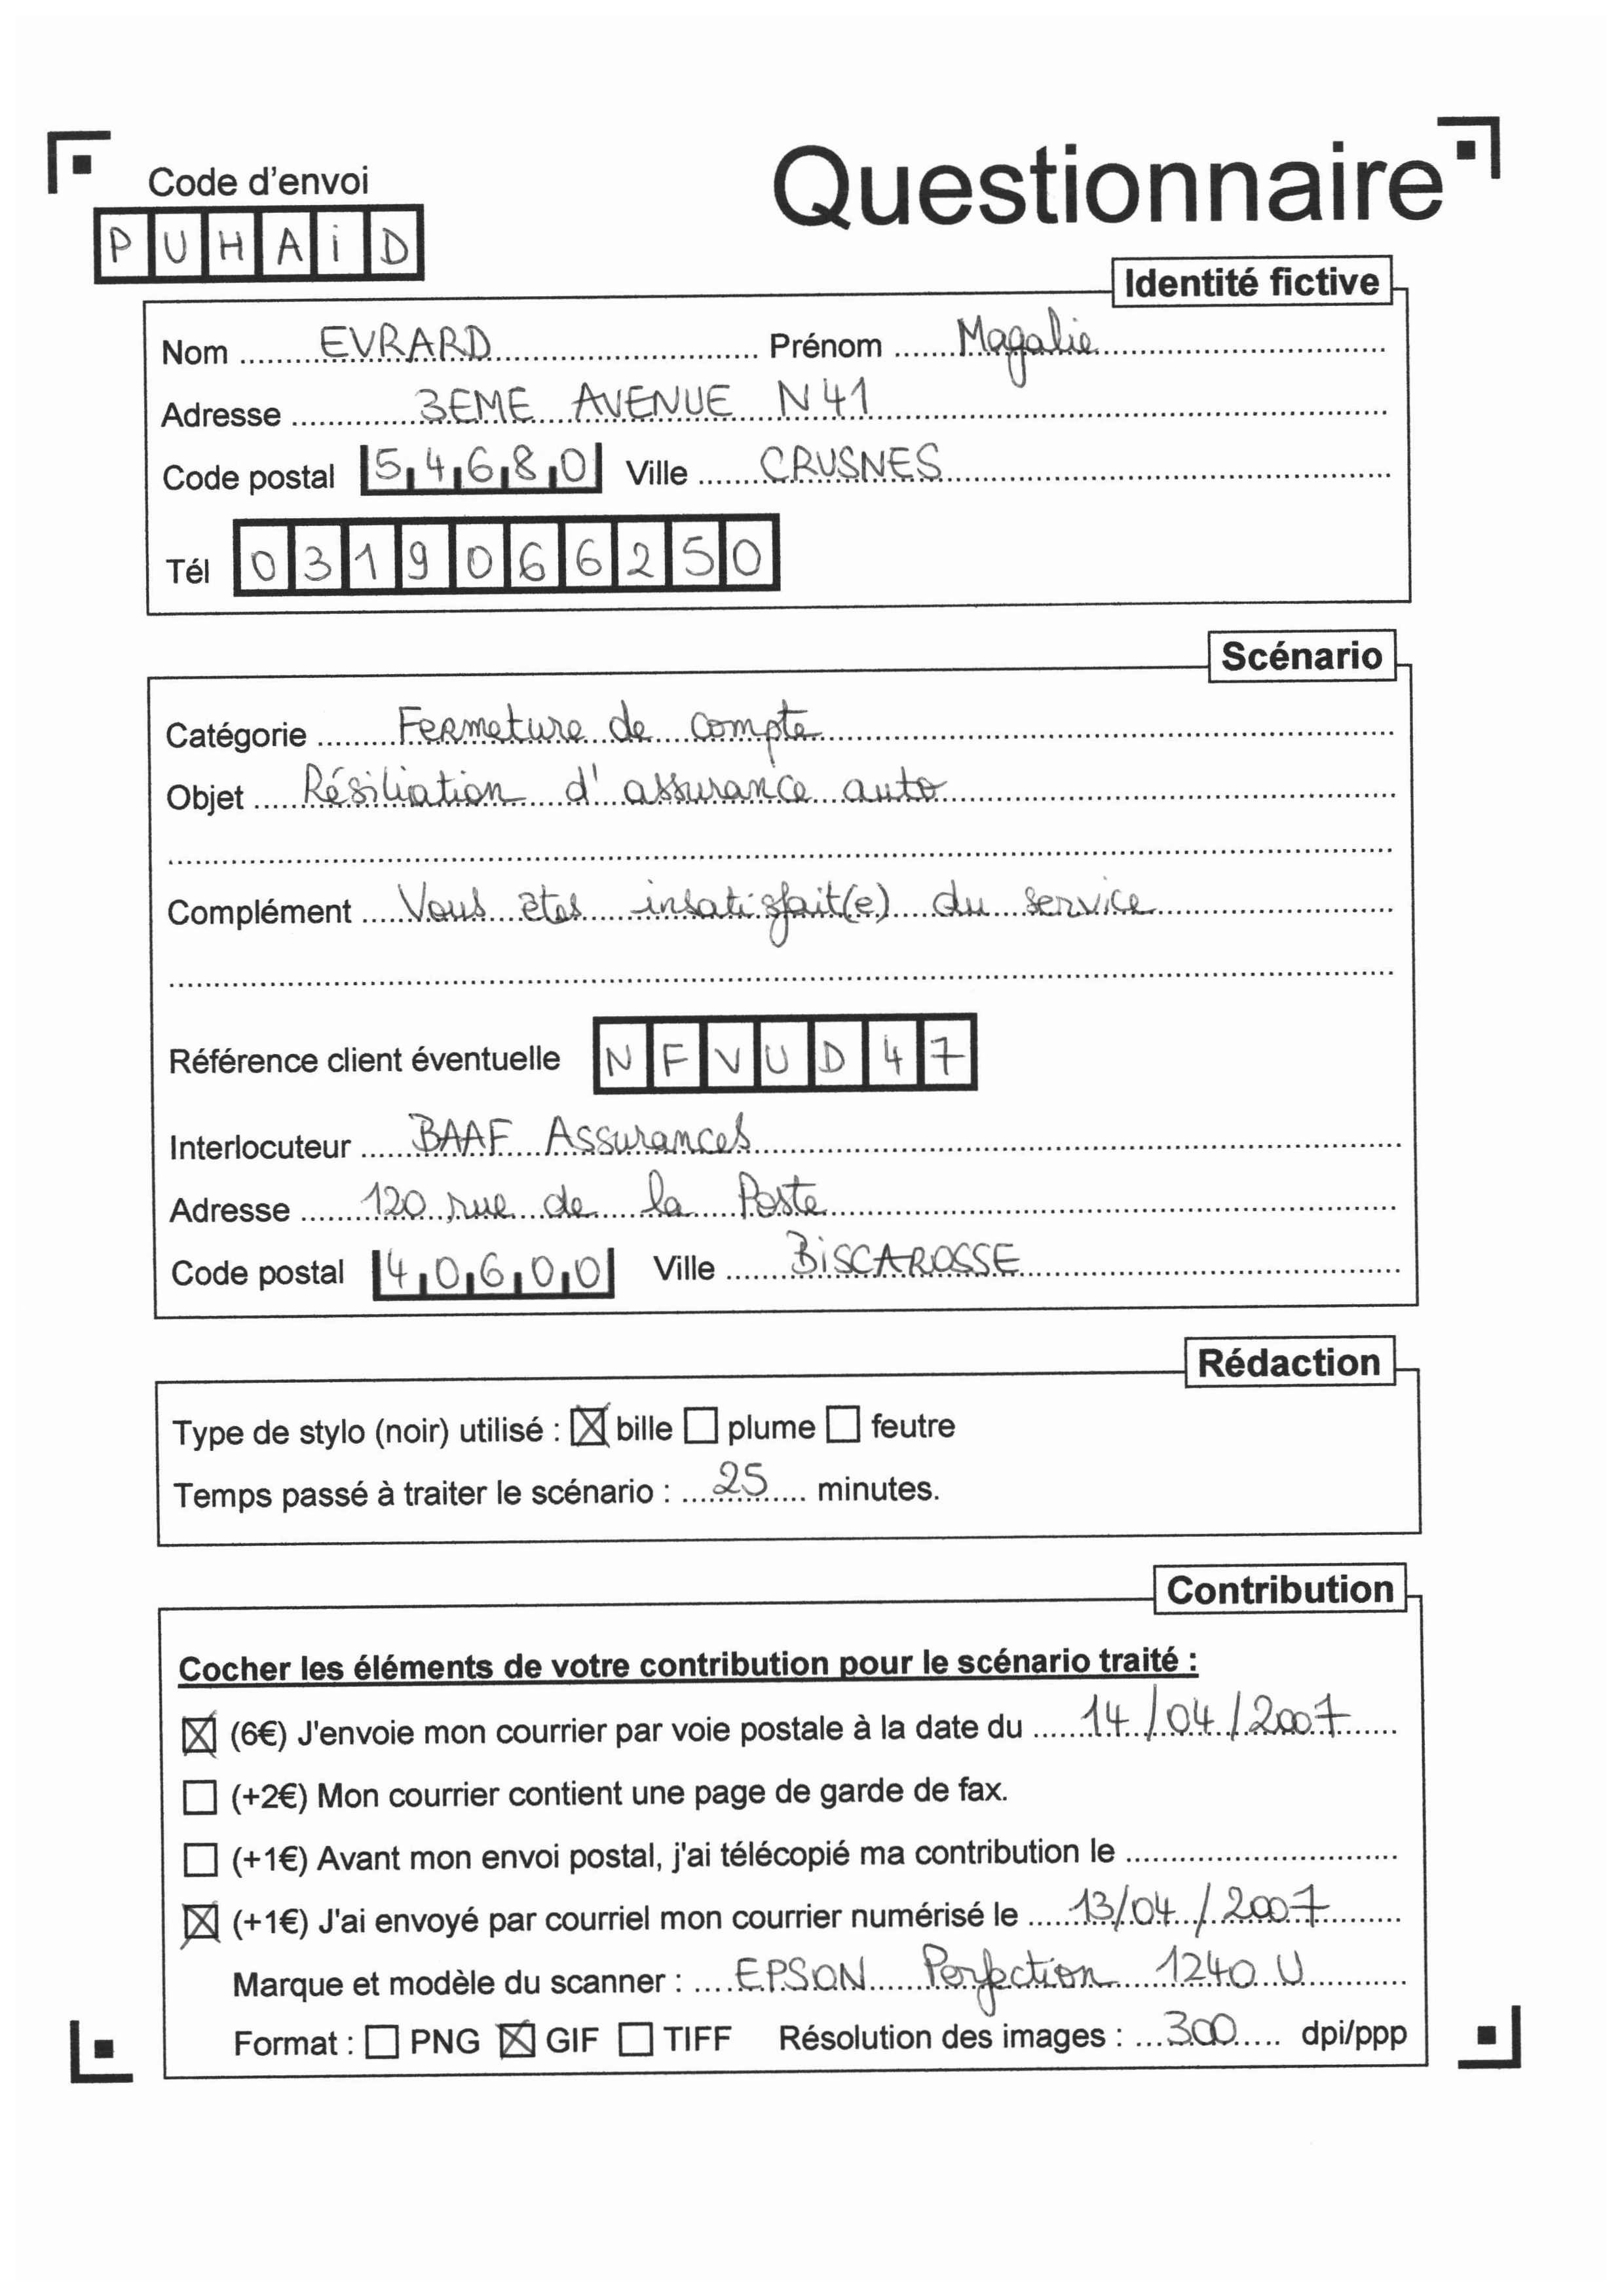 Questionnaire
Code d'envoi
PUHAiD
Identité fictive
Nom ........EVRARD........ Prénom ........Magalie........
Adresse ........3EME AVENUE N41........
Code postal 54680 Ville ........CRUSNES........
Tél 0319066250
Scénario
Catégorie ........Fermeture de compte........
Objet ........Résiliation d'assurance auto........
Complément ........Vous êtes insatisfait(e) du service........
Référence client éventuelle NFVUD47
Interlocuteur ........BAAF Assurances........
Adresse ........120 rue de la Poste........
Code postal 40600 Ville ........BiSCAROSSE........
Rédaction
Type de stylo (noir) utilisé : ☒ bille ☐ plume ☐ feutre
Temps passé à traiter le scénario : ....25.... minutes.
Contribution
Cocher les éléments de votre contribution pour le scénario traité :
☒ (6€) J'envoie mon courrier par voie postale à la date du ....14/04/2007....
☐ (+2€) Mon courrier contient une page de garde de fax.
☐ (+1€) Avant mon envoi postal, j'ai télécopié ma contribution le ............
☒ (+1€) J'ai envoyé par courriel mon courrier numérisé le ....13/04/2007....
Marque et modèle du scanner : ....EPSON Perfection 1240 U....
Format : ☐ PNG ☒ GIF ☐ TIFF Résolution des images : ...300... dpi/ppp